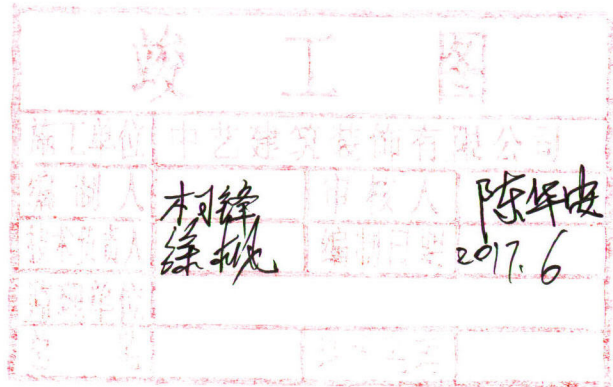 竣工图
施工单位 中艺建筑装饰有限公司
编制人 柯锋 审核人 陈华安
技术负责人 徐桃 编制日期 2017.6
监理单位
总监